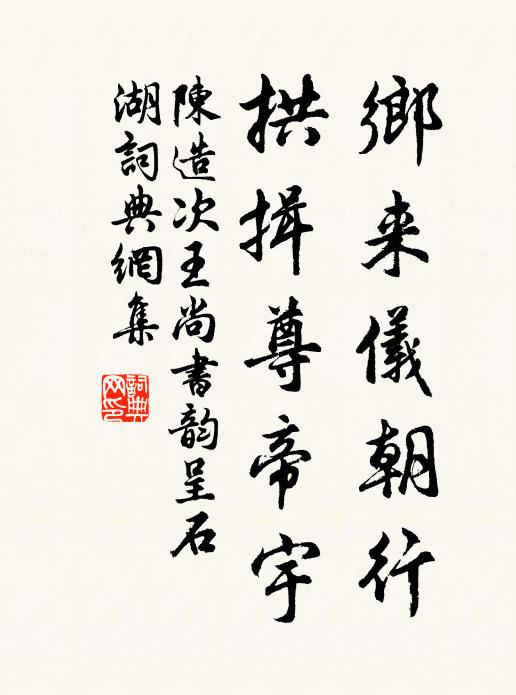 鄉来儀朝行
拱揖尊帝宇
陳造次王尚書韵呈石
湖詞典網集
詞典网印